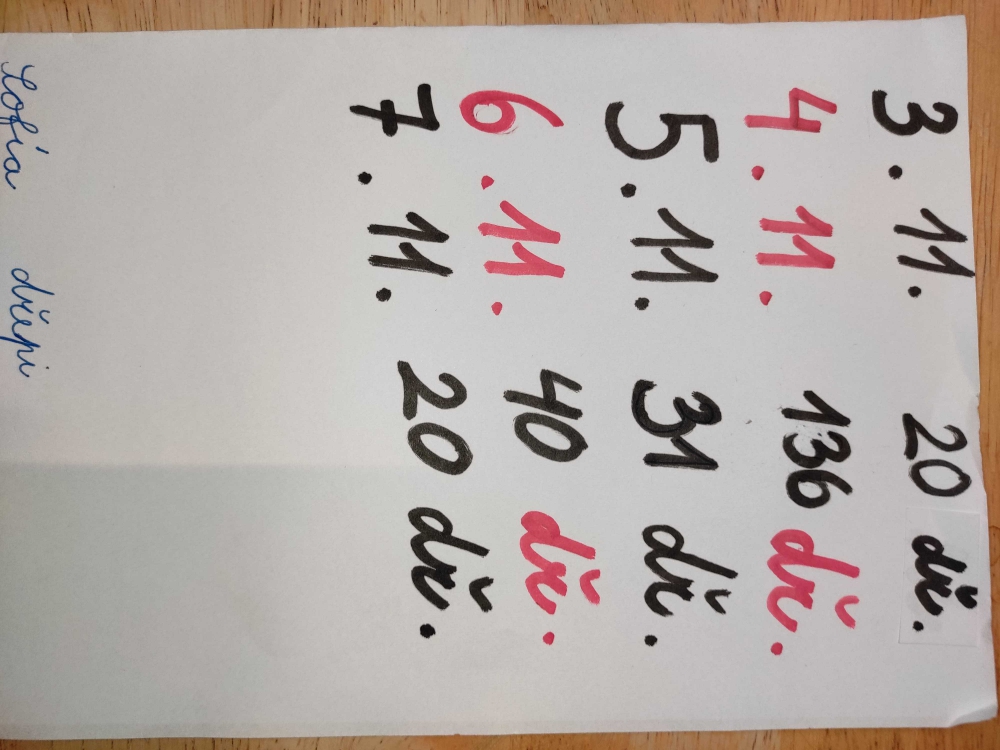 3. 11. 20 dř.
4. 11. 136 dř.
5. 11. 31 dř.
6. 11. 40 dř.
7. 11. 20 dř.
Sofia dřepi